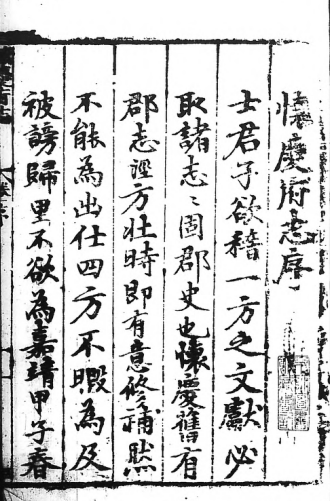 懷慶府志序
士君子欲稽一方之文獻必
取諸志〻固郡史也懷慶舊有
郡志涇方壯時即有意修補然
不能為出仕四方不暇為及
被謗歸里不欲為嘉靖甲子春